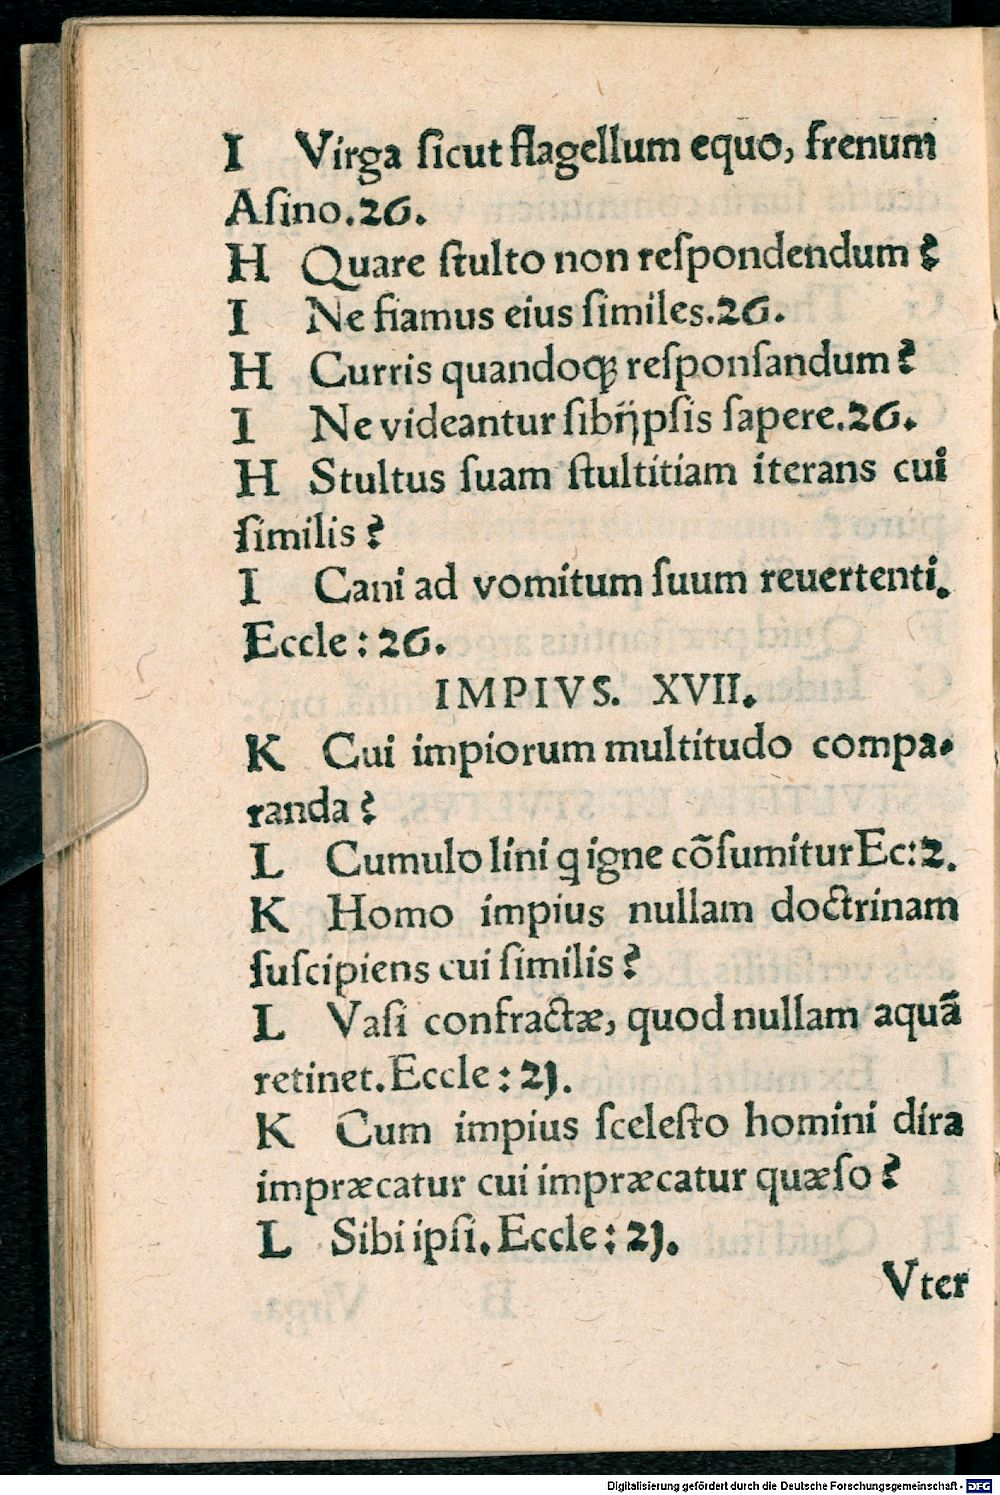 I Virga ſicut flagellum equo, frenum
Aſino.26.
H Quare ſtulto non reſpondendum?
I Ne fiamus eius ſimiles.26.
H Curris quandoqꝫ reſponſandum?
I Ne videantur ſibijpſis ſapere.26.
H Stultus ſuam ſtultitiam iterans cui
ſimilis?
I Cani ad vomitum ſuum reuertenti.
Eccle: 26.
IMPIVS. XVII.
K Cui impiorum multitudo compa-
randa?
L Cumulo lini q igne cõſumitur Ec: 2.
K Homo impius nullam doctrinam
ſuſcipiens cui ſimilis?
L Vaſi confractæ, quod nullam aquã
retinet. Eccle: 21.
K Cum impius ſceleſto homini dira
impræcatur cui impræcatur quæſo?
L Sibi ipſi. Eccle: 21.
Vter
Digitalisierung gefördert durch die Deutsche Forschungsgemeinschaft - DFG